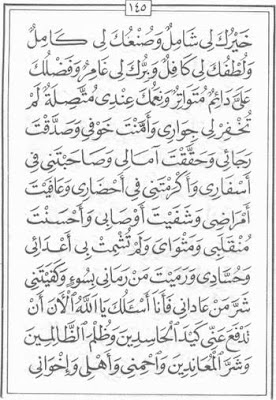 ١٤٥
خَيْرُكَ لِي شَامِلٌ وَصُنْعُكَ لِي كَامِلٌ
وَلُطْفُكَ لِي كَافِلٌ وَبِرُّكَ لِي غَامِرٌ وَفَضْلُكَ
عَلَيَّ دَائِمٌ مُتَوَاتِرٌ وَنِعَمُكَ عِنْدِي مُتَّصِلَةٌ لَمْ
تُخْفِرْ لِي جِوَارِي وَأَمَّنْتَ خَوْفِي وَصَدَّقْتَ
رَجَائِي وَحَقَّقْتَ آمَالِي وَصَاحَبْتَنِي فِي
أَسْفَارِي وَأَكْرَمْتَنِي فِي أَحْضَارِي وَعَافَيْتَ
أَمْرَاضِي وَشَفَيْتَ أَوْصَابِي وَأَحْسَنْتَ
مُنْقَلَبِي وَمَثْوَايَ وَلَمْ تُشْمِتْ بِي أَعْدَائِي
وَحُسَّادِي وَرَمَيْتَ مَنْ رَمَانِي بِسُوءٍ وَكَفَيْتَنِي
شَرَّ مَنْ عَادَانِي فَأَنَا أَسْئَلُكَ يَا اللَّهُ الْآنَ أَنْ
تَدْفَعَ عَنِّي كَيْدَ الْحَاسِدِينَ وَظُلْمَ الظَّالِمِينَ
وَشَرَّ الْمُعَانِدِينَ وَاحْمِنِي وَأَهْلِي وَإِخْوَانِي